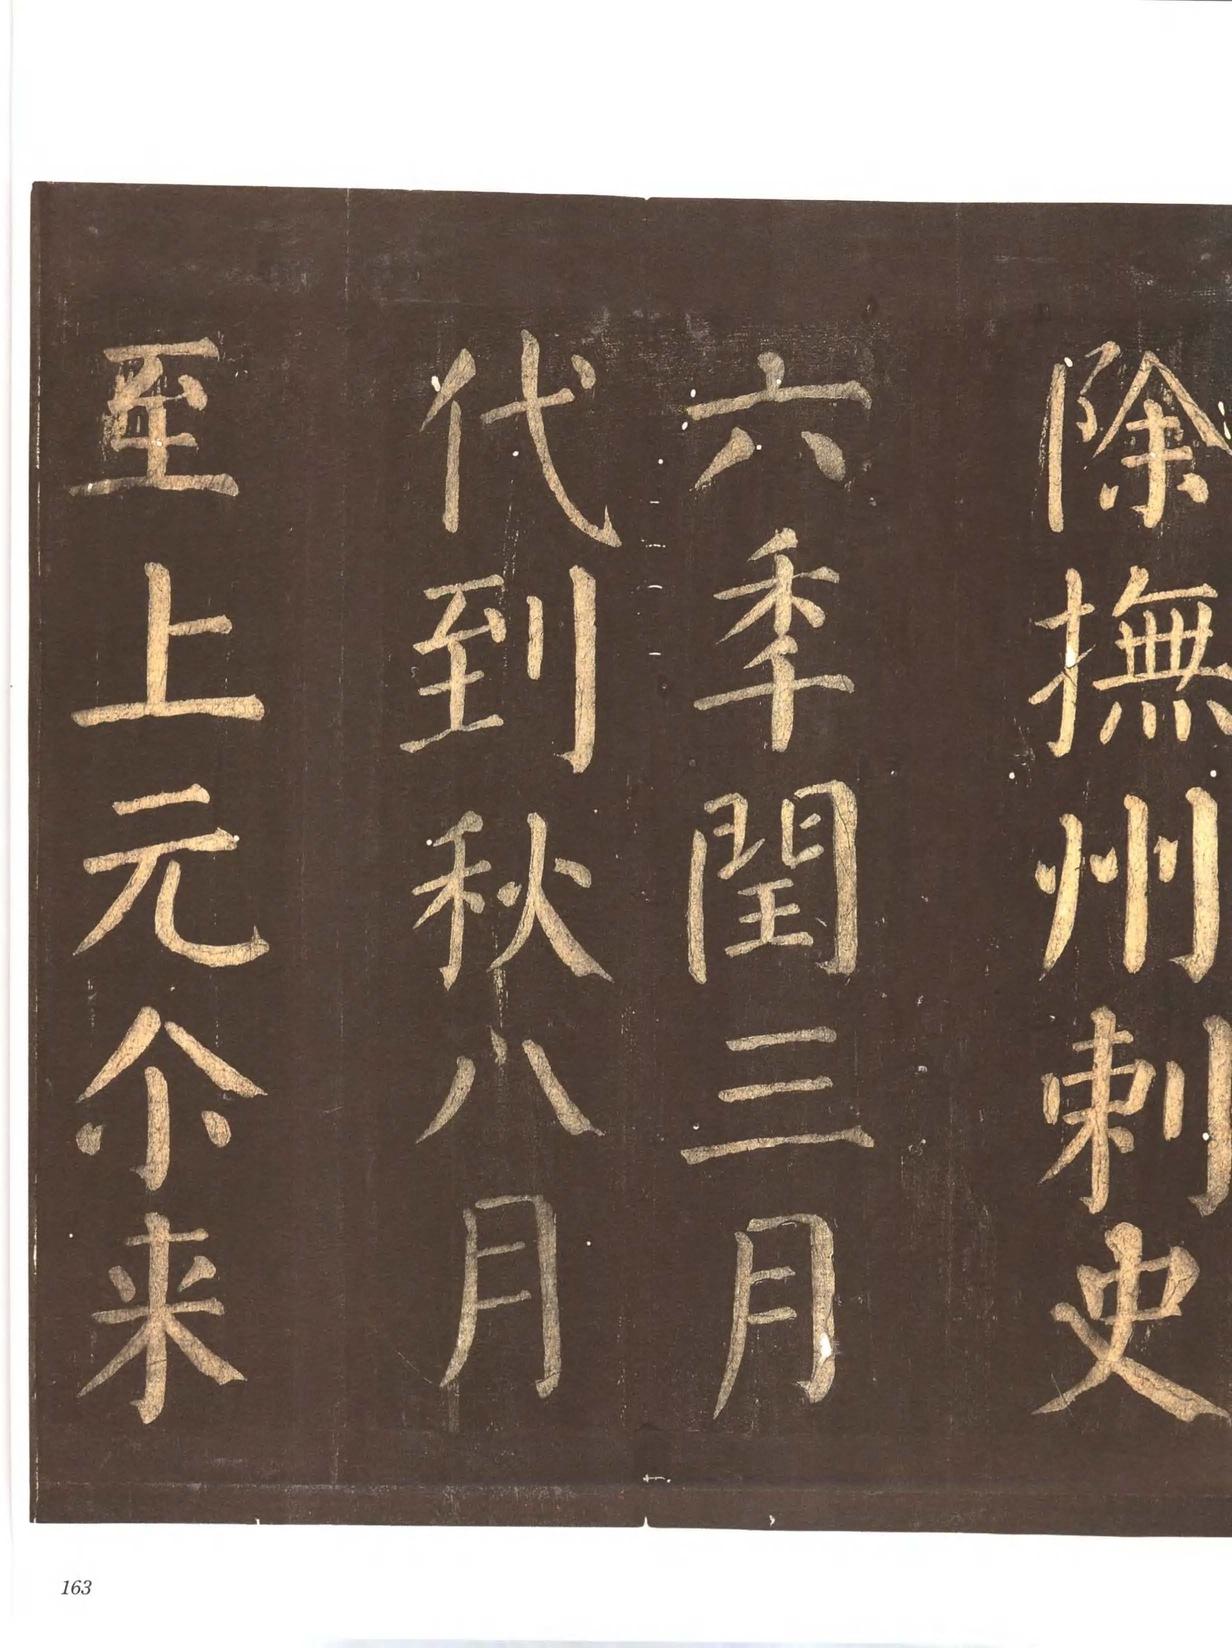 除撫州刺史
六秊閏三月
代到秋八月
至上元尒来
163